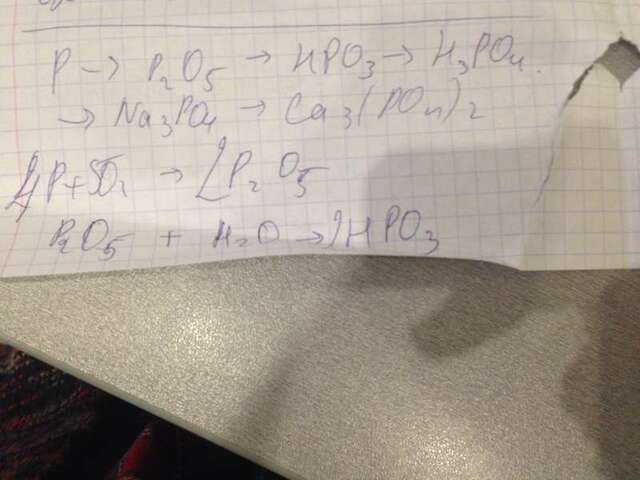 P → P₂O₅ → HPO₃ → H₃PO₄.
→ Na₃PO₄ → Ca₃(PO₄)₂
4P + 5O₂ → 2P₂O₅
P₂O₅ + H₂O → 2HPO₃